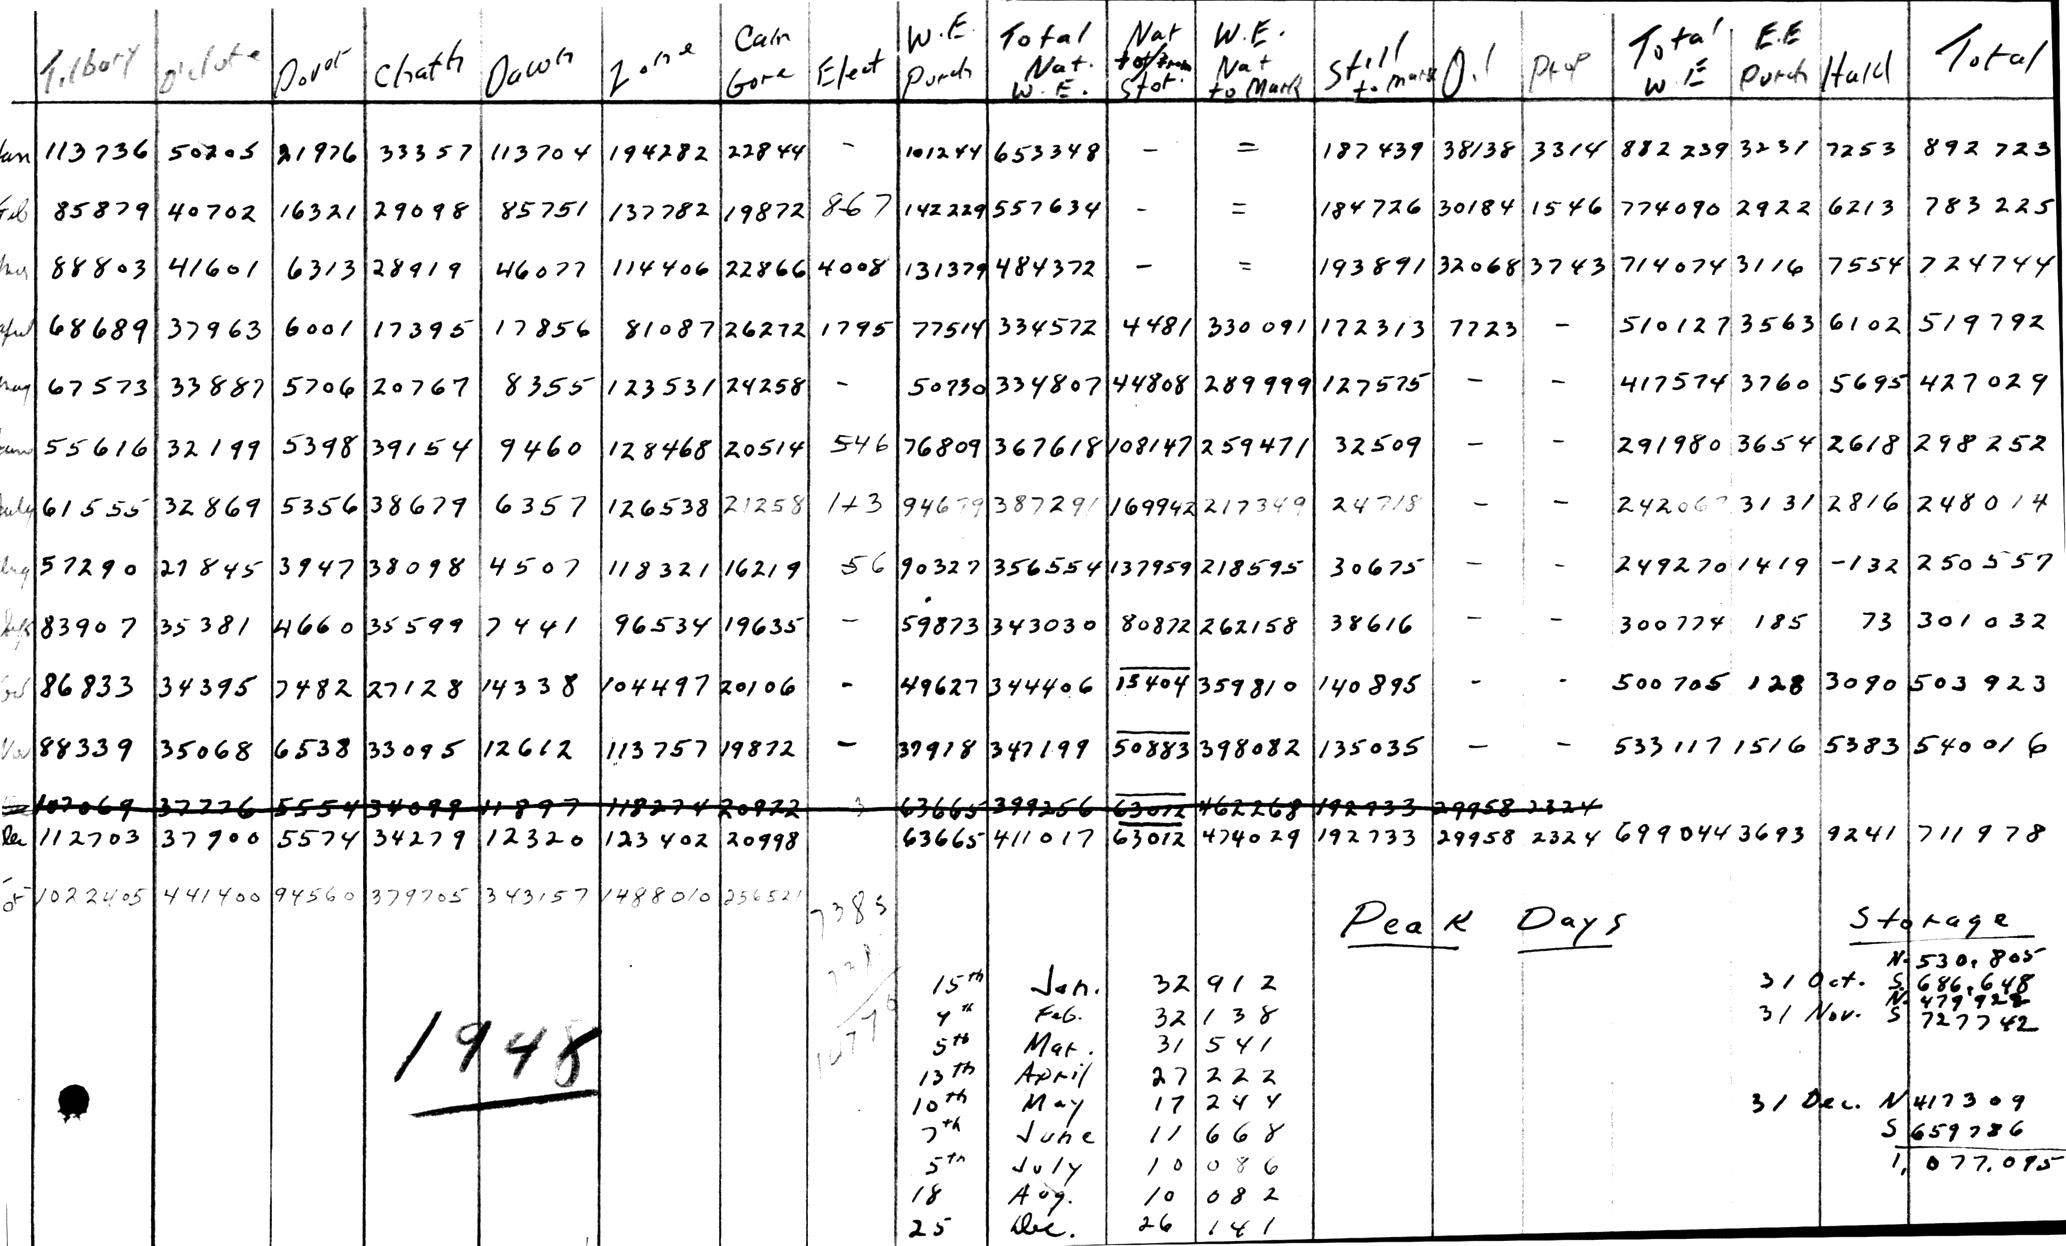 Tilbury D'Clute Dover Chath Dawn Zone Cam Gore Elect W.E. Purch Total Nat. W.E. Nat to/from Stor. W.E. Nat to Mark Still to Mark Oil Prop Total W E E.E Purch Hald Total
Jan 113736 50205 21976 33357 113704 194282 22844 - 101244 653348 - = 187439 38138 3314 882239 3231 7253 892723
Feb 85879 40702 16321 29098 85751 137782 19872 867 142229 557634 - = 184726 30184 1546 774090 2922 6213 783225
Mar 88803 41601 6313 28919 46077 114406 22866 4008 131379 484372 - = 193891 32068 3743 714074 3116 7554 724744
April 68689 37963 6001 17395 17856 81087 26272 1795 77514 334572 4481 330091 172313 7723 - 510127 3563 6102 519792
May 67573 33887 5706 20767 8355 123531 24258 - 50730 334807 44808 289999 127575 - - 417574 3760 5695 427029
June 55616 32199 5398 39154 9460 128468 20514 546 76809 367618 108147 259471 32509 - - 291980 3654 2618 298252
July 61555 32869 5356 38679 6357 126538 21258 94679 387291 169942 217349 24718 - - 242067 3131 2816 248014
Aug 57290 27845 3947 38098 4507 118321 16219 56 90327 356554 137959 218595 30675 - - 249270 1419 -132 250557
Sept 83907 35381 4660 35599 7441 96534 19635 - 59873 343030 80872 262158 38616 - - 300774 185 73 301032
Oct 86833 34395 7482 27128 14338 104497 20106 - 49627 344406 15404 359810 140895 - - 500705 128 3090 503923
Nov 88339 35068 6538 33095 12612 113757 19872 - 37918 347199 50883 398082 135035 - - 533117 1516 5383 540016
107069 37776 5554 34099 11897 118274 20922 3 63665 399256 63012 462268 192933 29958 2324
Dec 112703 37900 5574 34279 12320 123402 20998 63665 411017 63012 474029 192733 29958 2324 699044 3693 9241 711978
Tot 1022405 441400 94560 379705 343157 1488010 256521
7385
1948
Peak Days
15th Jan. 32 912
4th Feb. 32 138
5th Mar. 31 541
13th April 27 222
10th May 17 244
7th June 11 668
5th July 10 086
18 Aug. 10 082
25 Dec. 26 141
Storage
N. 530,805
31 Oct. S. 686,648
N. 479,928
31 Nov. S 727742
31 Dec. N 417309
S 659786
1,077,095